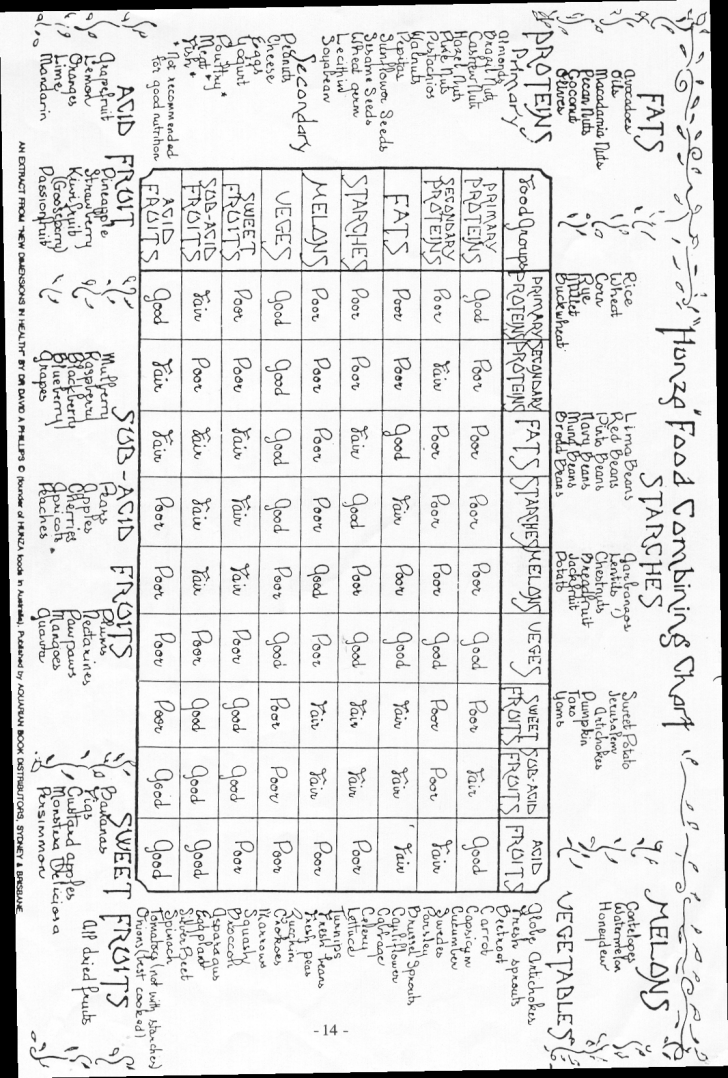 "Hunza" Food Combining Chart
FATS
Avocadoes
Oils
Macadamia Nuts
Pecan Nuts
Coconut
Olives
STARCHES
Rice
Wheat
Corn
Rye
Millet
Buckwheat
Lima Beans
Red Beans
Pinto Beans
Navy Beans
Mung Beans
Broad Beans
Garbanzos
Lentils
Chestnuts
Breadfruit
Jackfruit
Potato
Sweet Potato
Jerusalem
Artichokes
Pumpkin
Taro
Yams
MELONS
Cantelopes
Watermelon
Honeydew
PROTEINS
Primary
Almonds
Brazil Nuts
Cashew Nuts
Hazel Nuts
Pine Nuts
Pistachios
Walnuts
Pepitas
Sunflower Seeds
Sesame Seeds
Wheat germ
Lecithin
Soyabean
Secondary
Peanuts
Cheese
Eggs
Yogurt
Poultry *
Meat *
Fish *
* Not recommended
for good nutrition
Food Groups PRIMARY PROTEINS SECONDARY PROTEINS FATS STARCHES MELONS VEGES SWEET FRUITS SUB-ACID FRUITS ACID FRUITS
PRIMARY PROTEINS Good Poor Poor Poor Poor Good Poor Fair Good
SECONDARY PROTEINS Poor Fair Poor Poor Poor Good Poor Poor Fair
FATS Poor Poor Good Fair Poor Good Fair Fair Fair
STARCHES Poor Poor Fair Good Poor Good Fair Fair Poor
MELONS Poor Poor Poor Poor Good Poor Fair Fair Poor
VEGES Good Good Good Good Poor Good Poor Poor Poor
SWEET FRUITS Poor Poor Fair Fair Fair Poor Good Good Poor
SUB-ACID FRUITS Fair Poor Fair Fair Fair Poor Good Good Good
ACID FRUITS Good Fair Fair Poor Poor Poor Poor Good Good
VEGETABLES
Globe Artichokes
Fresh sprouts
Beetroot
Carrot
Capsicum
Cucumber
Swedes
Parsley
Brussel Sprouts
Cauliflower
Cabbage
Celery
Lettuce
Turnips
Fresh beans
Fresh peas
Zuchini
Chokoes
Marrows
Squash
Broccoli
Asparagus
Eggplant
Silver Beet
Spinach
Tomatoes (not with starches)
Onions (best cooked)
ACID FRUIT
Grapefruit
Lemon
Oranges
Lime
Mandarin
Pineapple
Strawberry
Kiwifruit
(Gooseberry)
Passionfruit
SUB-ACID FRUITS
Mulberry
Raspberry
Blackberry
Blueberry
Grapes
Pears
Apples
Cherries
Apricots
Peaches
Plums
Nectarines
Pawpaws
Mangoes
Guava
SWEET FRUITS
Bananas
Figs
Custard apples
Monsteria Deliciosa
Persimmon
All dried fruits
AN EXTRACT FROM 'NEW DIMENSIONS IN HEALTH' BY DR DAVID A PHILLIPS © (founder of HUNZA foods in Australia). Published by AQUARIAN BOOK DISTRIBUTORS, SYDNEY & BRISBANE.
- 14 -